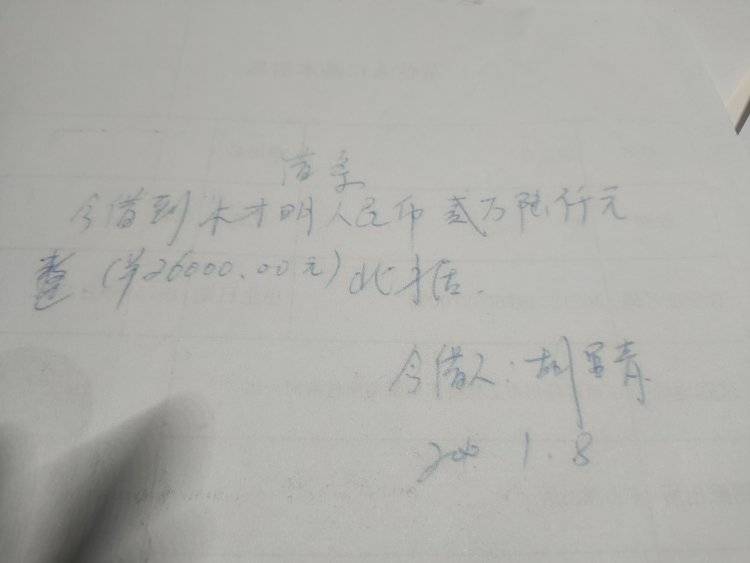 借条
今借到木才明人民币贰万陆仟元
整(¥26000.00元)此据.
今借人:胡军青
1.8